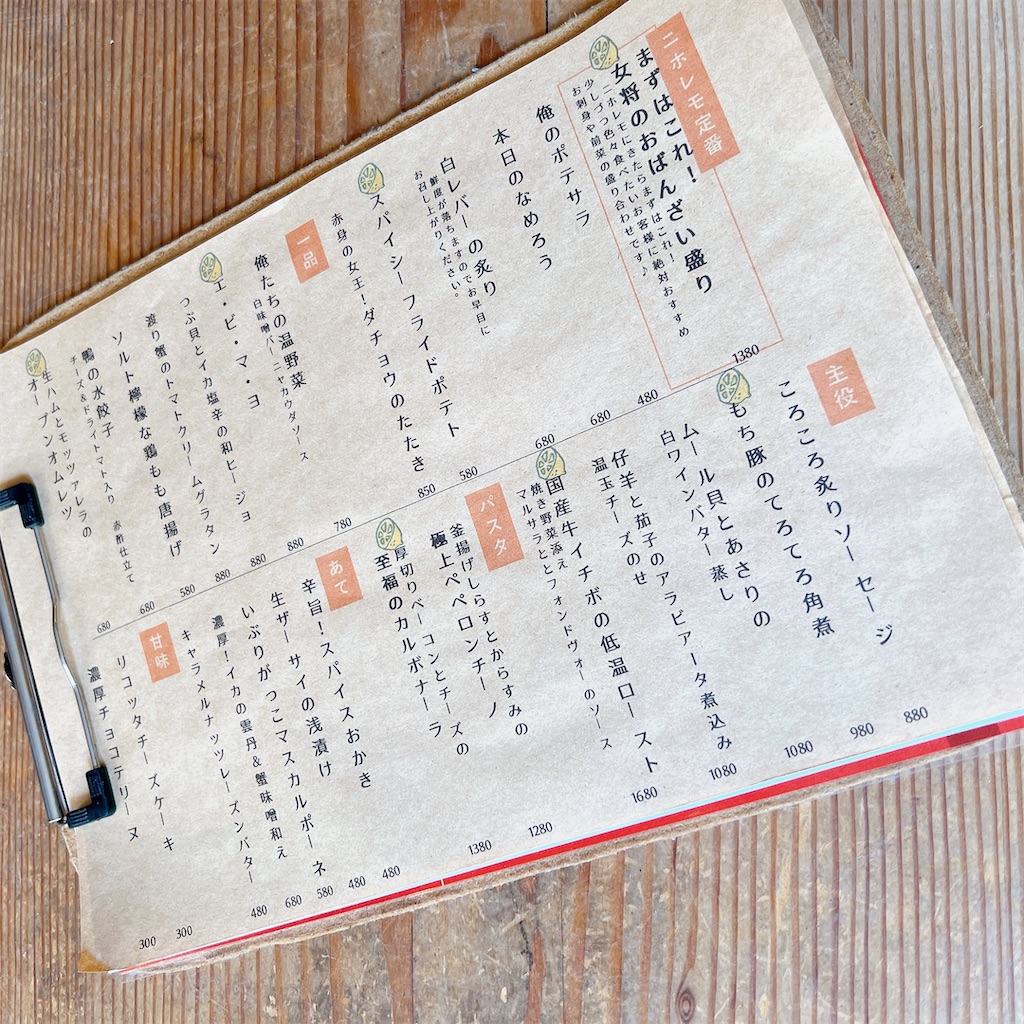 ニホレモ定番
まずはこれ！
女将のおばんざい盛り
ニホレモにきたらまずはこれ！
少しづつ色々食べたいお客様に絶対おすすめ
お刺身や前菜の盛り合わせです♪
1380
俺のポテサラ
480
本日のなめろう
680
白レバーの炙り
鮮度が落ちますのでお早目に
お召し上がりください。
680
スパイシーフライドポテト
580
赤身の女王！ダチョウのたたき
850
一品
俺たちの温野菜
白味噌バーニャカウダソース
780
エ・ビ・マ・ヨ
880
つぶ貝とイカ塩辛の和ヒージョ
880
渡り蟹のトマトクリームグラタン
880
ソルト檸檬な鶏もも唐揚げ
580
鴨の水餃子
チーズ&ドライトマト入り 赤酢仕立て
680
生ハムとモッツァレラの
オープンオムレツ
680
主役
ころころ炙りソーセージ
880
もち豚のてろてろ角煮
980
ムール貝とあさりの
白ワインバター蒸し
1080
仔羊と茄子のアラビアータ煮込み
温玉チーズのせ
1080
国産牛イチボの低温ロースト
焼き野菜添え
マルサラととフォンドヴォーのソース
1680
パスタ
釜揚げしらすとからすみの
極上ペペロンチーノ
1280
厚切りベーコンとチーズの
至福のカルボナーラ
1380
あて
辛旨！スパイスおかき
480
生ザーサイの浅漬け
480
いぶりがっこマスカルポーネ
580
濃厚！イカの雲丹&蟹味噌和え
680
キャラメルナッツレーズンバター
480
甘味
リコッタチーズケーキ
300
濃厚チョコテリーヌ
300